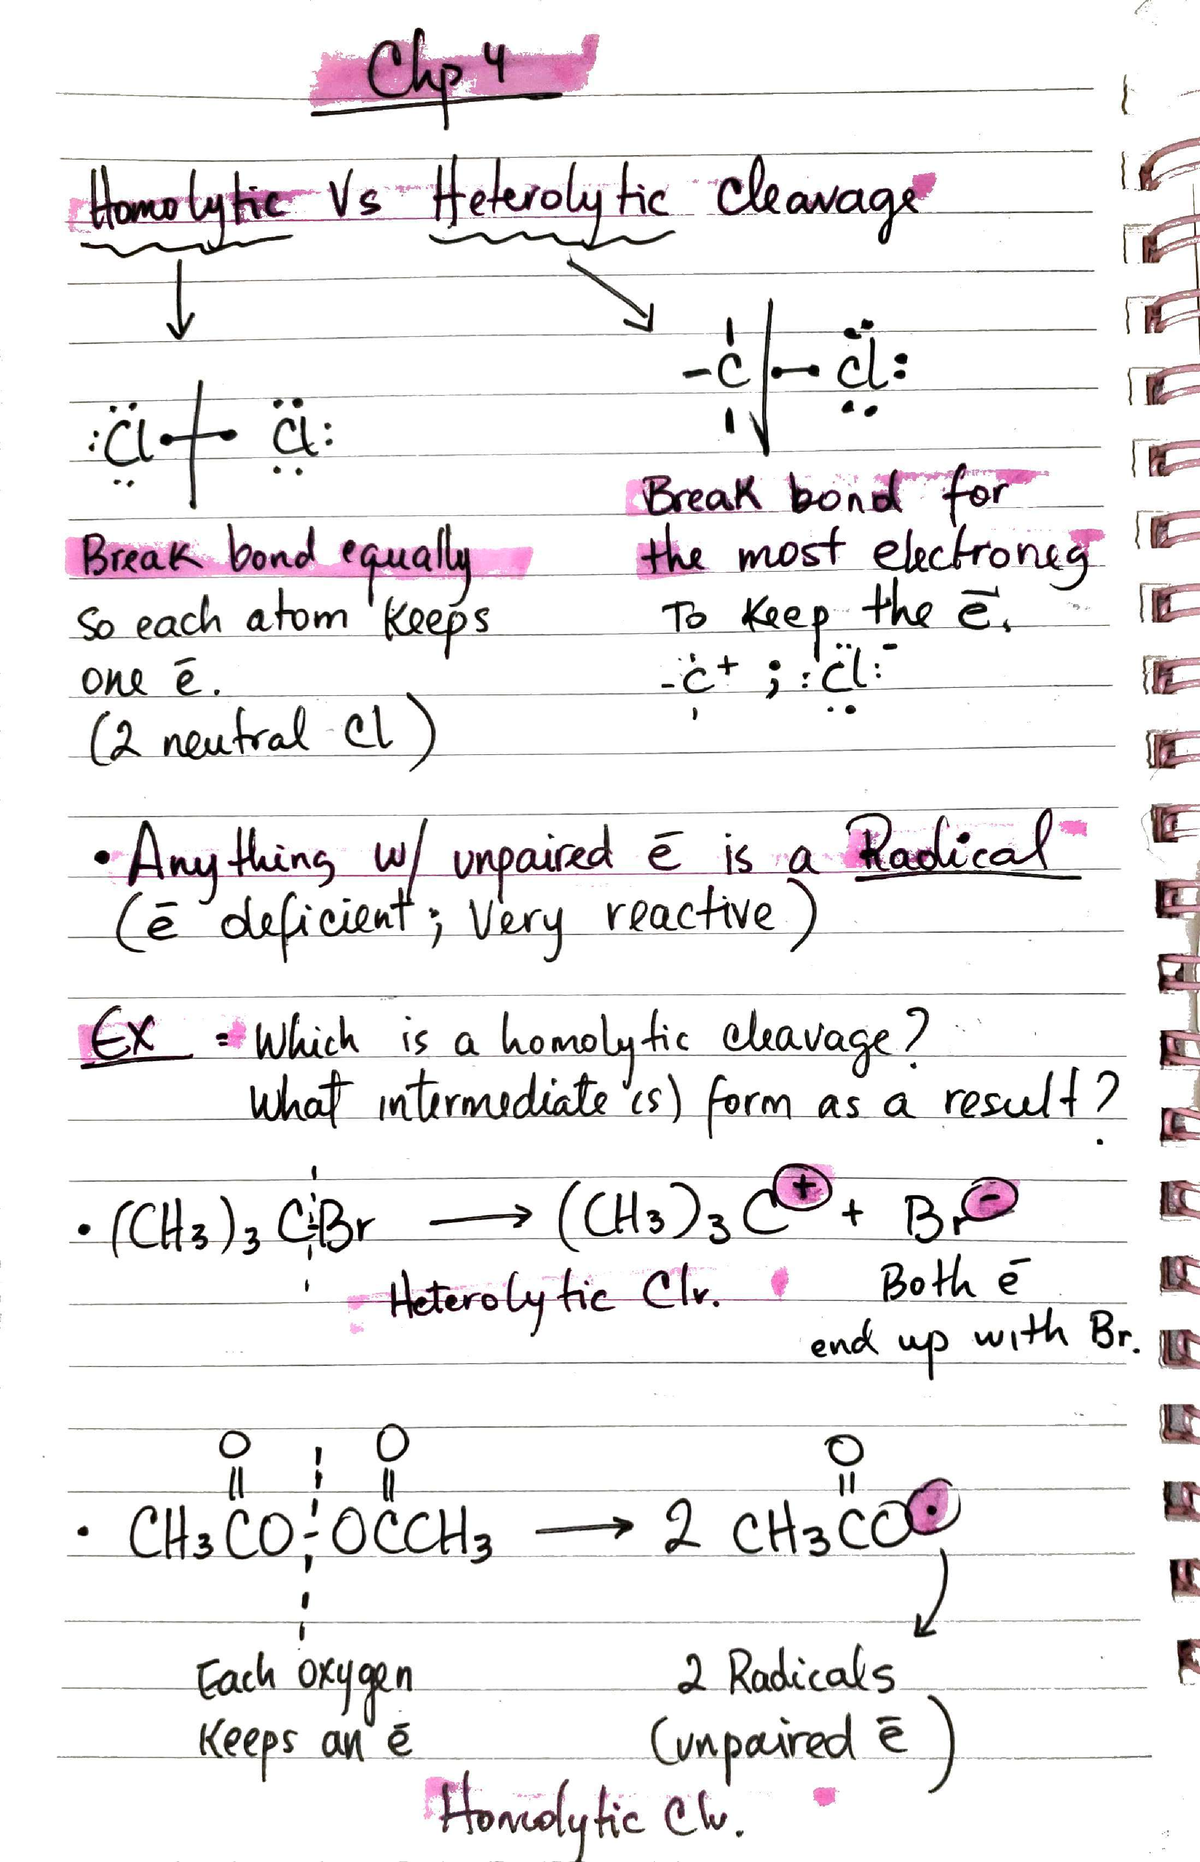 Chp 4
Homolytic Vs Heterolytic cleavage
-C-Cl:
:Cl-Cl:
Break bond equally
so each atom keeps
one ē.
(2 neutral Cl)
Break bond for
the most electroneg
To keep the ē.
-C+ ; :Cl:-
• Anything w/ unpaired ē is a Radical
(ē deficient; Very reactive)
EX = Which is a homolytic cleavage?
What intermediate (s) form as a result?
• (CH3)3 C-Br → (CH3)3 C+ + Br-
Heterolytic Clv.
Both ē
end up with Br.
O O O
|| || ||
• CH3CO-OCCH3 → 2 CH3CO•
Each oxygen
Keeps an ē
2 Radicals
(unpaired ē)
Homolytic Clv.